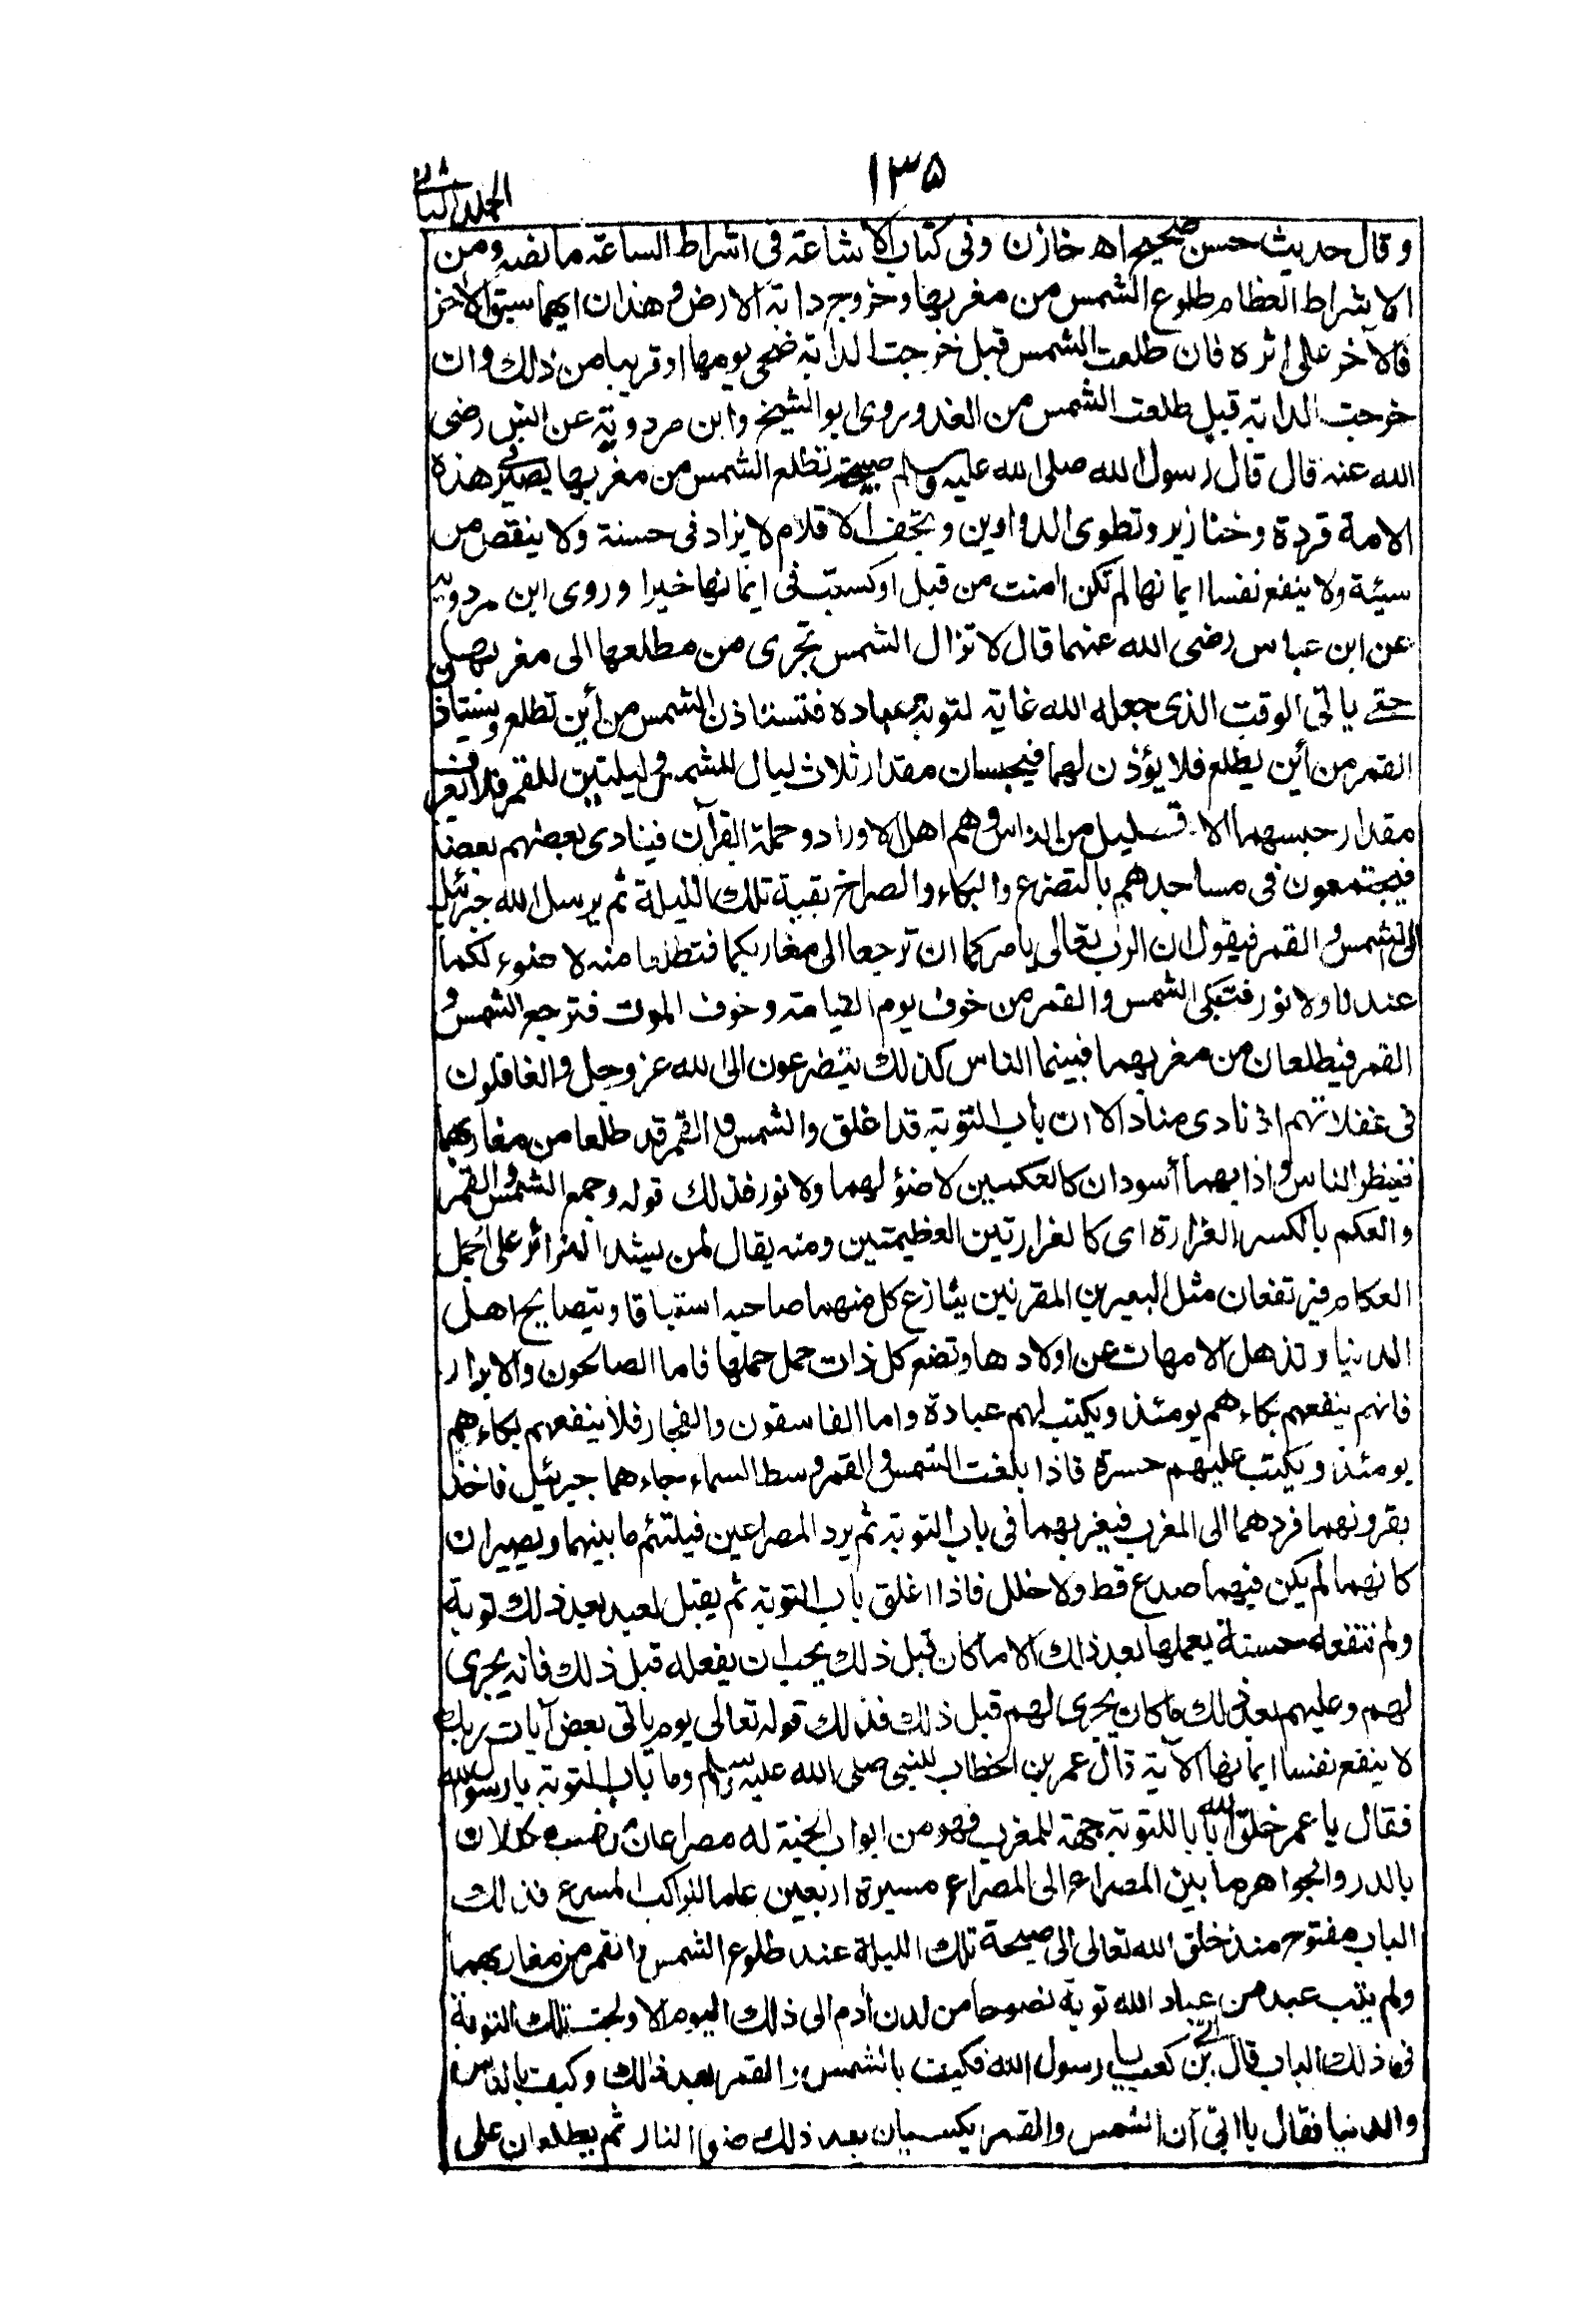 ١٣٥
الجلد الثانی
وقال حديث حسن صحيح اه خازن وفى كتاب الاشاعة فى اشراط الساعة ما نصه ومن
الاشراط العظام طلوع الشمس من مغربها وخروج دابة الارض وهذان ايهما سبق الآخر
فالآخر على اثره فان طلعت الشمس قبل خرجت الدابة ضحى يومها او قريبا من ذلك وان
خرجت الدابة قبل طلعت الشمس من الغد وروى ابو الشيخ وابن مردوية عن انس رضى
الله عنه قال قال رسول الله صلى الله عليه وسلم صبيحة تطلع الشمس من مغربها يصير فى هذه
الامة قردة وخنازير وتطوى الدواوين وتجف الاقلام لا يزاد فى حسنة ولا ينقص من
سيئة ولا ينفع نفسا ايمانها لم تكن امنت من قبل او كسبت فى ايمانها خيرا وروى ابن مردويه
عن ابن عباس رضى الله عنهما قال لا تزال الشمس تجرى من مطلعها الى مغربها
حتى يأتى الوقت الذى جعله الله غاية لتوبة عباده فتستاذن الشمس من أين تطلع ويستاذن
القمر من أين يطلع فلا يؤذن لهما فيحبسان مقدار ثلاث ليال للشمس وليلتين للقمر فلا يعرف
مقدار حبسهما الا قليل من الناس وهم اهل الاوراد وحملة القرآن فينادى بعضهم بعضا
فيجتمعون فى مساجدهم بالتضرع والبكاء والصراخ بقية تلك الليلة ثم يرسل الله جبرئيل
الى الشمس والقمر فيقول ان الرب تعالى يامركما ان ترجعا الى مغاربكما فتطلعا منه لا ضوء لكما
عندنا ولا نور فتبكى الشمس والقمر من خوف يوم القيامة وخوف الموت فترجع الشمس و
القمر فيطلعان من مغربهما فبينما الناس كذلك يتضرعون الى الله عز وجل والغافلون
فى غفلاتهم اذ نادى مناد الا ان باب التوبة قد اغلق والشمس والقمر قد طلعا من مغاربهما
فينظر الناس واذا بهما أسودان كالعكمين لا ضؤ لهما ولا نور فذلك قوله وجمع الشمس والقمر
والعكم بالكسر الغرارة اى كالغرارتين العظيمتين ومنه يقال لمن يشد الغرائر على الجمل
العكام فيرتفعان مثل البعيرين المقرنين ينازع كل منهما صاحبه استباقا ويتصايح اهل
الدنيا وتذهل الامهات عن اولادها وتضع كل ذات حمل حملها فاما الصالحون والابرار
فانهم ينفعهم بكاءهم يومئذ ويكتب لهم عبادة واما الفاسقون والفجار فلا ينفعهم بكاءهم
يومئذ ويكتب عليهم حسرة فاذا بلغت الشمس والقمر وسط السماء جاءهما جبرئيل فاخذ
بقرونهما فردهما الى المغرب فيغربهما فى باب التوبة ثم يرد المصراعين فيلتئم ما بينهما ويصيران
كانهما لم يكن فيهما صدع قط ولا خلل فاذا اغلق باب التوبة ثم يقبل لعبد بعد ذلك توبة
ولم تنفعه حسنة يعملها بعد ذلك الا ما كان قبل ذلك يحب ان يفعله قبل ذلك فانه يجرى
لهم وعليهم بعد ذلك ما كان يجرى لهم قبل ذلك فذلك قوله تعالى يوم ياتى بعض آيات ربك
لا ينفع نفسا ايمانها الآية قال عمر بن الخطاب للنبى صلى الله عليه وسلم وما باب التوبة يا رسول الله
فقال يا عمر خلق الله بابا للتوبة جهة المغرب فهو من ابواب الجنة له مصراعان من ذهب مكللان
بالدر والجواهر ما بين المصراع الى المصراع مسيرة اربعين عاما للراكب المسرع فذلك
الباب مفتوح منذ خلق الله تعالى الى صبيحة تلك الليلة عند طلوع الشمس والقمر من مغاربهما
ولم يتب عبد من عباد الله توبة نصوحا من لدن آدم الى ذلك اليوم الا ولجت تلك التوبة
فى ذلك الباب قال ابى بن كعب يا رسول الله فكيف بالشمس والقمر بعد ذلك وكيف بالناس
والدنيا فقال يا ابى ان الشمس والقمر يكسيان بعد ذلك ضوء النار ثم يطلعان على